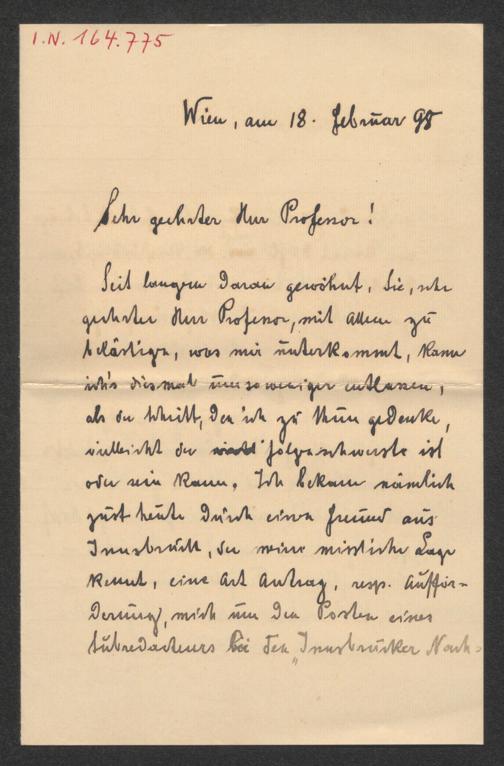 I.N. 164.775
Wien, am 18. Februar 98
Sehr geehrter Herr Professor!
Seit langem daran gewöhnt, Sie, sehr
geehrter Herr Professor, mit Allem zu
belästigen, was mir unterkommt, kann
ich's diesmal umsoweniger entlassen,
als der Schritt, den ich zu thun gedenke,
vielleicht der folgenschwerste ist
oder sein kann. Ich bekam nämlich
just heute durch einen Freund aus
Innsbruck, der meine missliche Lage
kennt, eine Art Antrag, resp. Auffor-
derung, mich um den Posten eines
Subredacteurs bei den „Innsbrucker Nach-